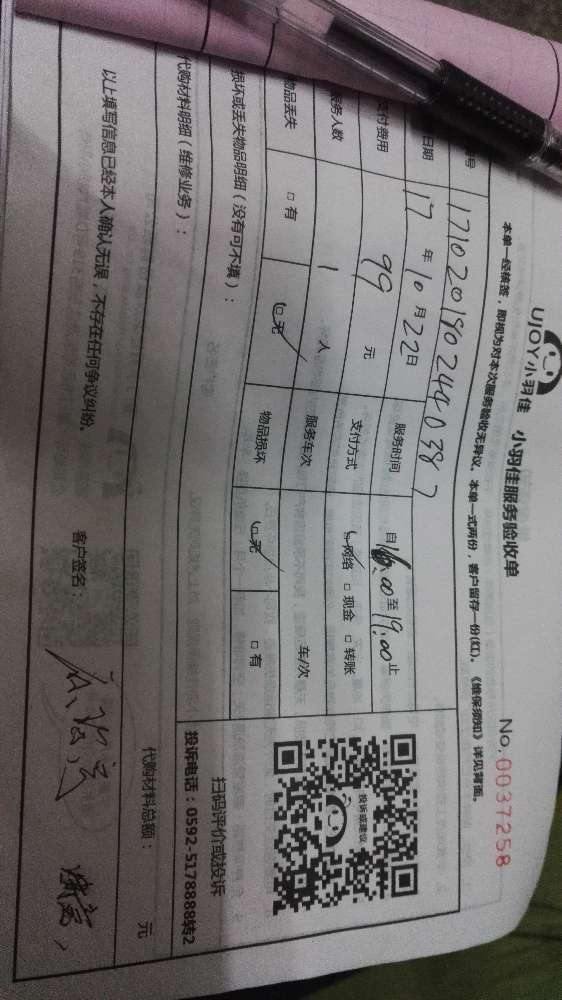 UJOY小羽佳 小羽佳服务验收单
No.0037258
本单一经核签，即视为对本次服务验收无异议。本单一式两份，客户留存一份(红)。《维保须知》详见背面。
号 1710201802440387
日期 17年10月22日 服务时间 自16:00至19:00止
付费用 99元 支付方式 □网络 □现金 □转账
服务人数 1人 服务车次 车/次
物品丢失 □有 □无 物品损坏 □无 □有
损坏或丢失物品明细（没有可不填）：
投诉或建议
扫码评价或投诉
投诉电话：0592-5178888转2
代购材料明细（维修业务）：
代购材料总额： 元
以上填写信息已经本人确认无误，不存在任何争议纠纷。
客户签名：